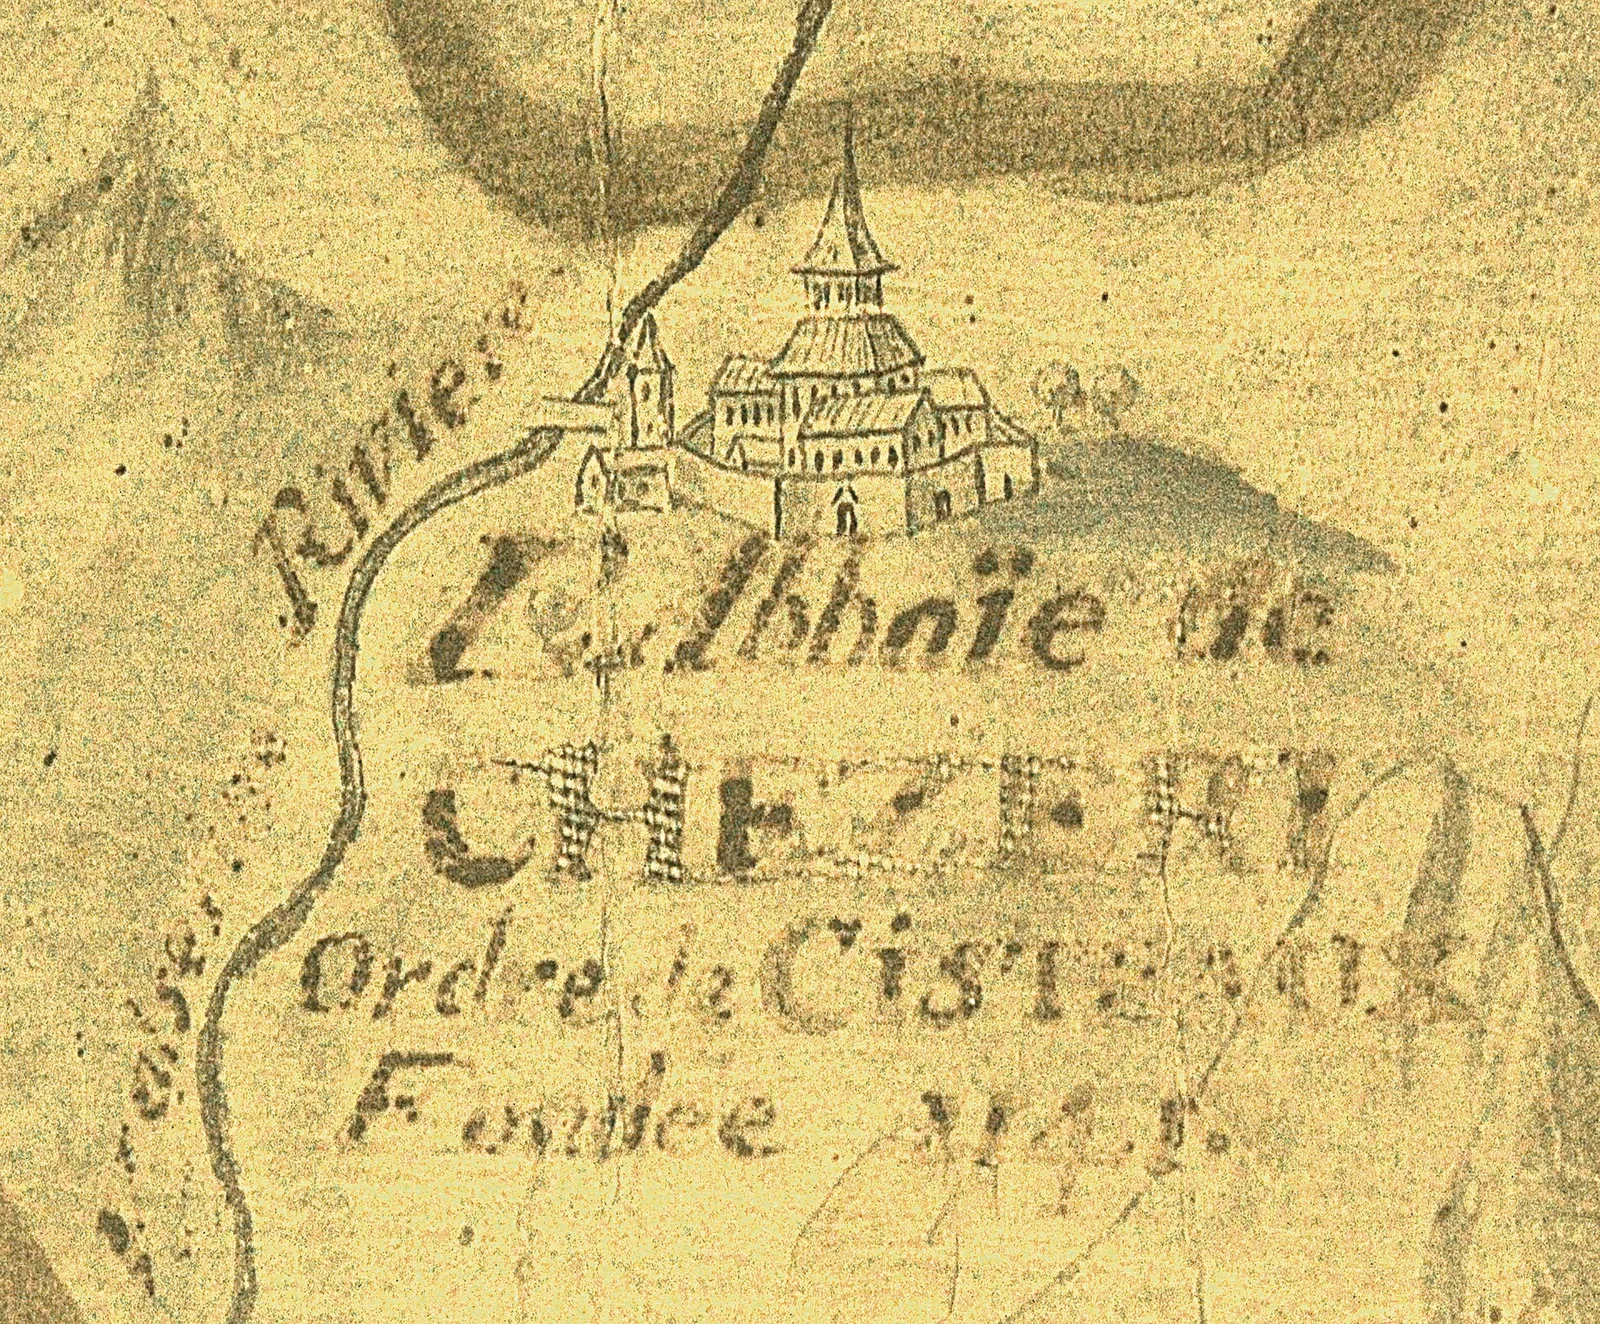 Rivie:
L'Abbaïe de
CHEZERI
Ordre de CISTEAUX
Fondée 1141.